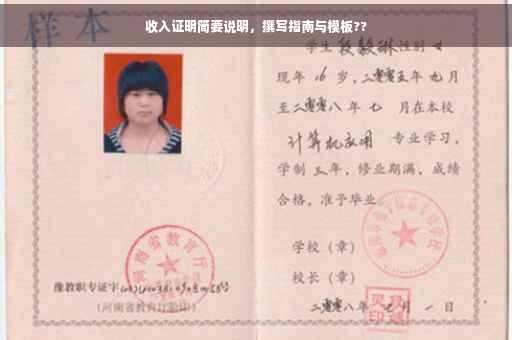 收入证明简要说明，撰写指南与模板??
样本
学生段毅琳性别女
现年16岁，二零零五年九月
至二零零八年七月在本校
计算机应用 专业学习，
学制三年，修业期满，成绩
合格，准予毕业
学校（章）
校长（章）
二零零八年七月一日
河南省教育厅
豫教职专证字
（河南省教育厅验印）